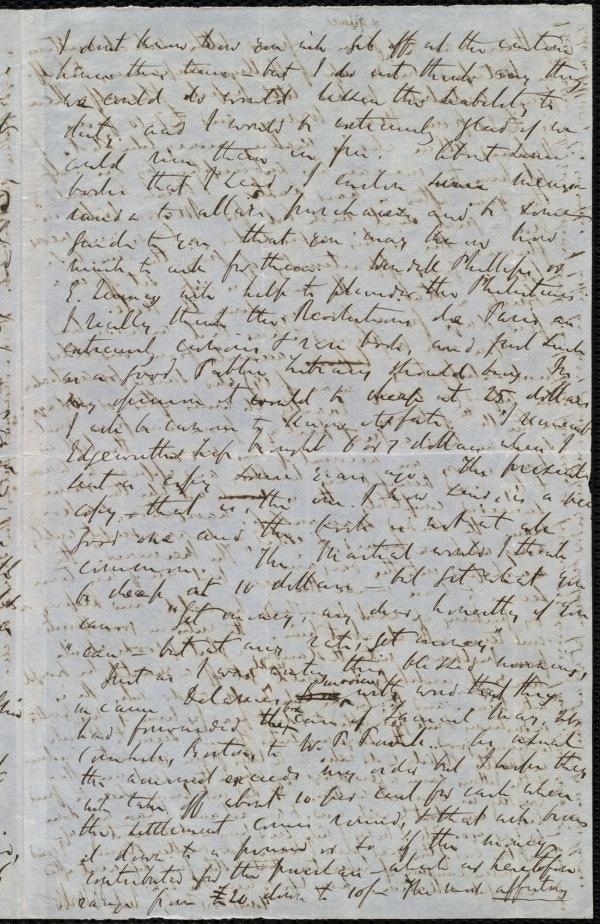 I don't know how you will get off at the custom
house this time - but I do not think any thing
we could do would lessen the liability to
duty and I would be extremely glad if we
could run them in free. About some
books that I send, I enclose some memo-
randa to allure purchasers, and be some
guide to you, that you may know how
much to ask for them. Wendell Phillips or
E. Quincy will help to plunder the Philistines.
I really think the Revolutions de Paris an
extremely curious & rare book, and just such
as a good Public Library should buy. In
my opinion it would be cheap at 25 dollars
I will be curious to know its fate. I remember
Edgeworth's brought 6 or 7 dollars when I
sent a copy some years ago. The present
copy - that is, the one I now send, is a nice
good one and the book is not at all
common. The Martial would I think
be cheap at 10 dollars - but get what you
can. "Get money, my dear, honestly if you
"can - but at any rate, get money."
Just as I was writing this blessed morning,
in came with word that they
had forwarded the of Samuel May, 21
Cornhill, Boston, to W. P. as usual
the amount exceeds my order but I hope they
will take off about 10 per cent for cash when
the settlement comes round, & that will bring
it down to a pound or so of the money
contributed for the purchase - which as heretofore
range from £20, down to 10/- The most affecting